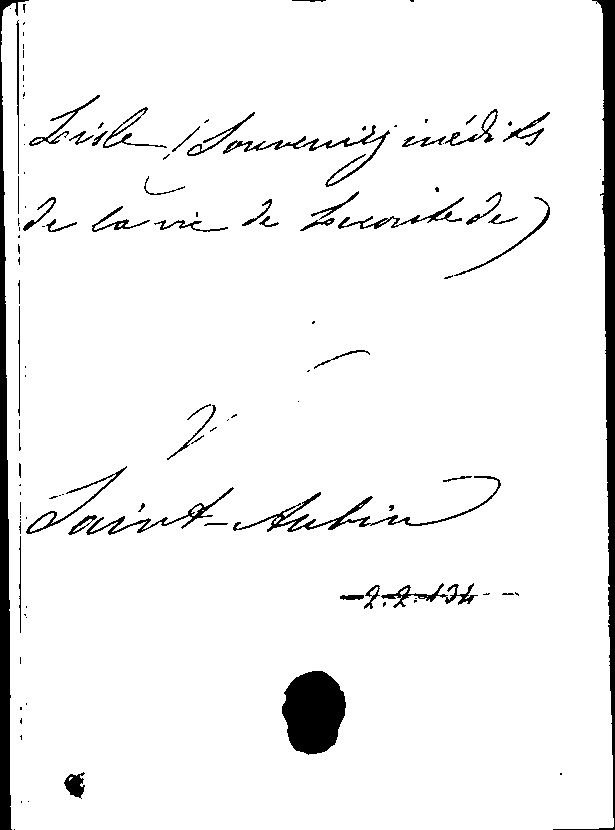 Lisle (Souvenirs inédits
de la vie de Leconte de)
V.
Saint-Aubin
2.2.134